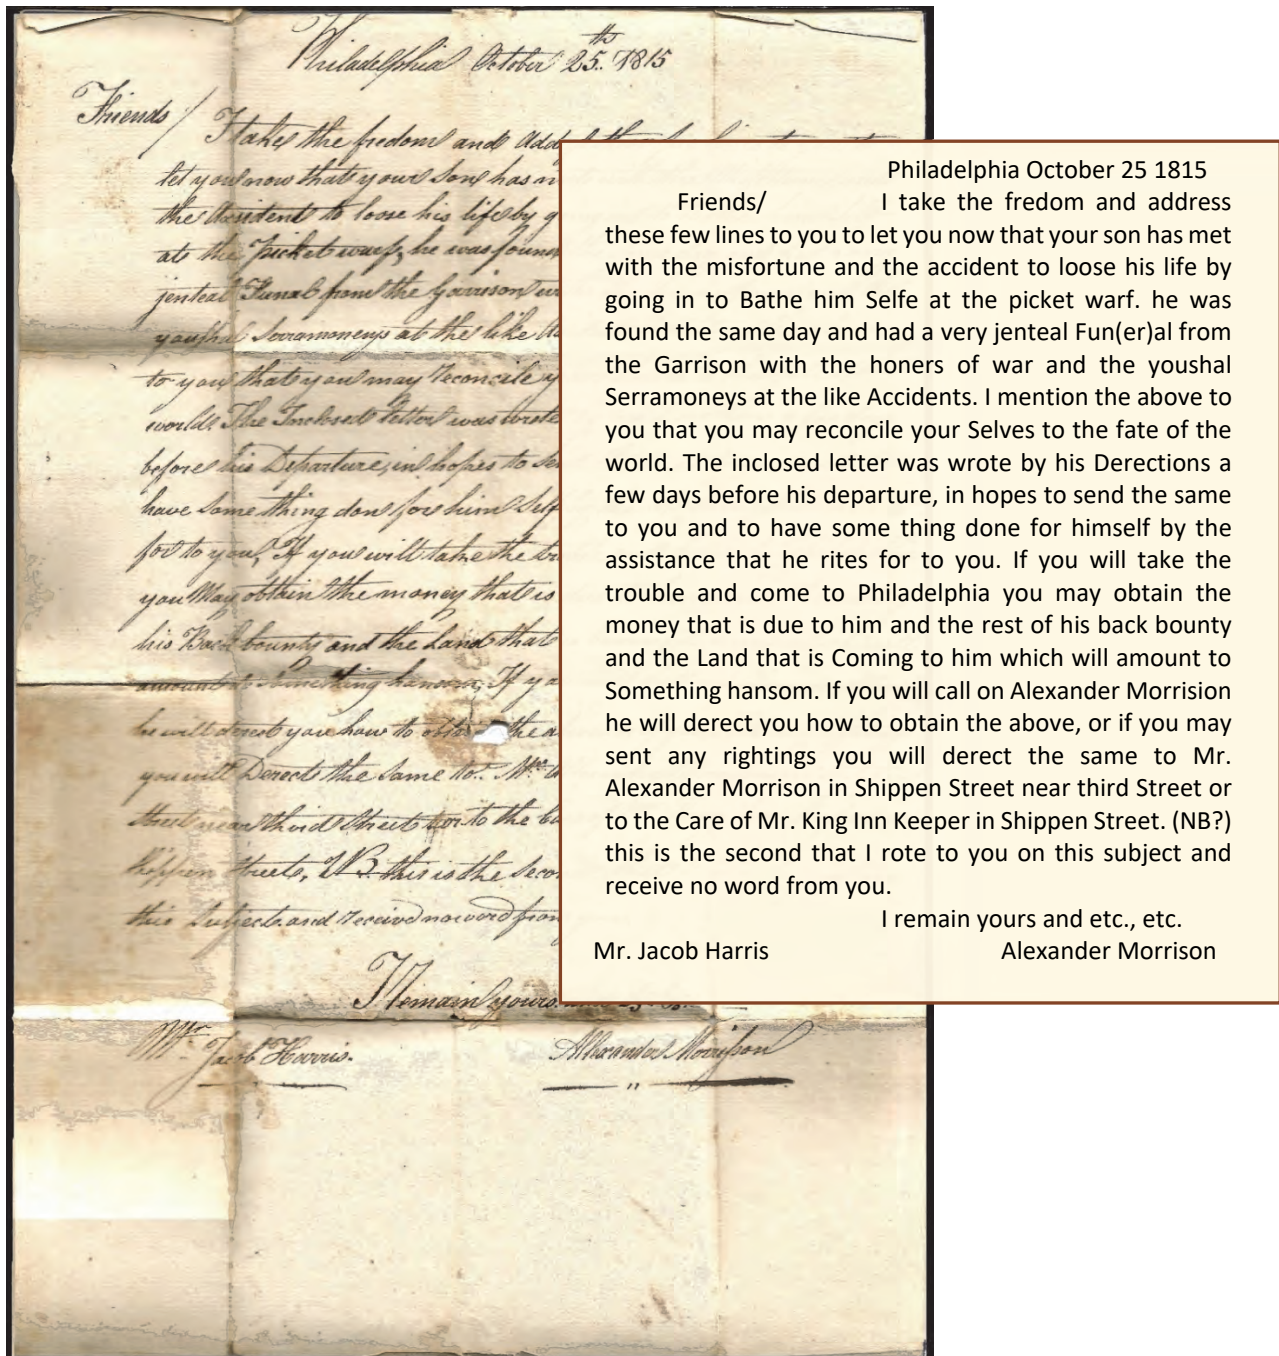 Philadelphia October 25th. 1815
Friends/
I take the fredom and Add
let you now that your Son has m
the Accident to loose his life by g
at the Picket warf, he was foun
jenteal Funal from the Garrison w
youshal Serramoneys at the like A
to you that you may reconcile y
world. The Inclosed letter was wrote
before his Departure, in hopes to se
have some thing don for him Self
for to you, If you will take the tr
you May obtain the money that is
his Back bounty and the Land that
amount to Something hansom, If y
he will derect you how to obtain the a
you will Derect the Same to. Mr. A
Street near third Street or to the Ca
Shippen Street, NB. this is the Seco
this Subject and Receive no word from
I Remain yours
Mr. Jacob Harris.
Alexander Morrison
Philadelphia October 25 1815
Friends/ I take the fredom and address
these few lines to you to let you now that your son has met
with the misfortune and the accident to loose his life by
going in to Bathe him Selfe at the picket warf. he was
found the same day and had a very jenteal Fun(er)al from
the Garrison with the honers of war and the youshal
Serramoneys at the like Accidents. I mention the above to
you that you may reconcile your Selves to the fate of the
world. The inclosed letter was wrote by his Derections a
few days before his departure, in hopes to send the same
to you and to have some thing done for himself by the
assistance that he rites for to you. If you will take the
trouble and come to Philadelphia you may obtain the
money that is due to him and the rest of his back bounty
and the Land that is Coming to him which will amount to
Something hansom. If you will call on Alexander Morrision
he will derect you how to obtain the above, or if you may
sent any rightings you will derect the same to Mr.
Alexander Morrison in Shippen Street near third Street or
to the Care of Mr. King Inn Keeper in Shippen Street. (NB?)
this is the second that I rote to you on this subject and
receive no word from you.
I remain yours and etc., etc.
Mr. Jacob Harris Alexander Morrison